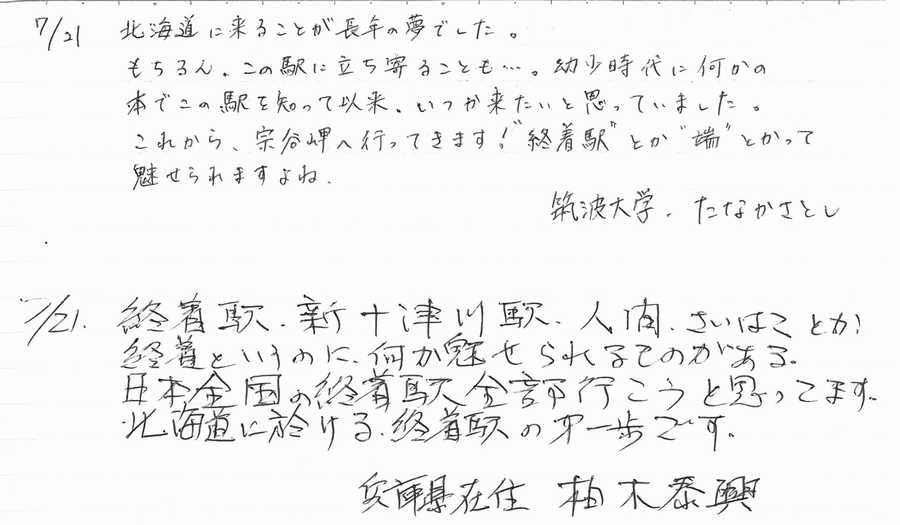 7/21 北海道に来ることが長年の夢でした。
もちろん、この駅に立ち寄ることも…。幼少時代に何かの
本でこの駅を知って以来、いつか来たいと思っていました。
これから、宗谷岬へ行ってきます!“終着駅”とか“端”とかって
魅せられますよね、
筑波大学、たなかさとし
7/21. 終着駅、新十津川駅、人間、さいはてとか
終着というのに、何か魅せられるものがある。
日本全国の終着駅全部行こうと思ってます。
北海道に於ける、終着駅の第一歩です。
兵庫県在住 柚木泰興